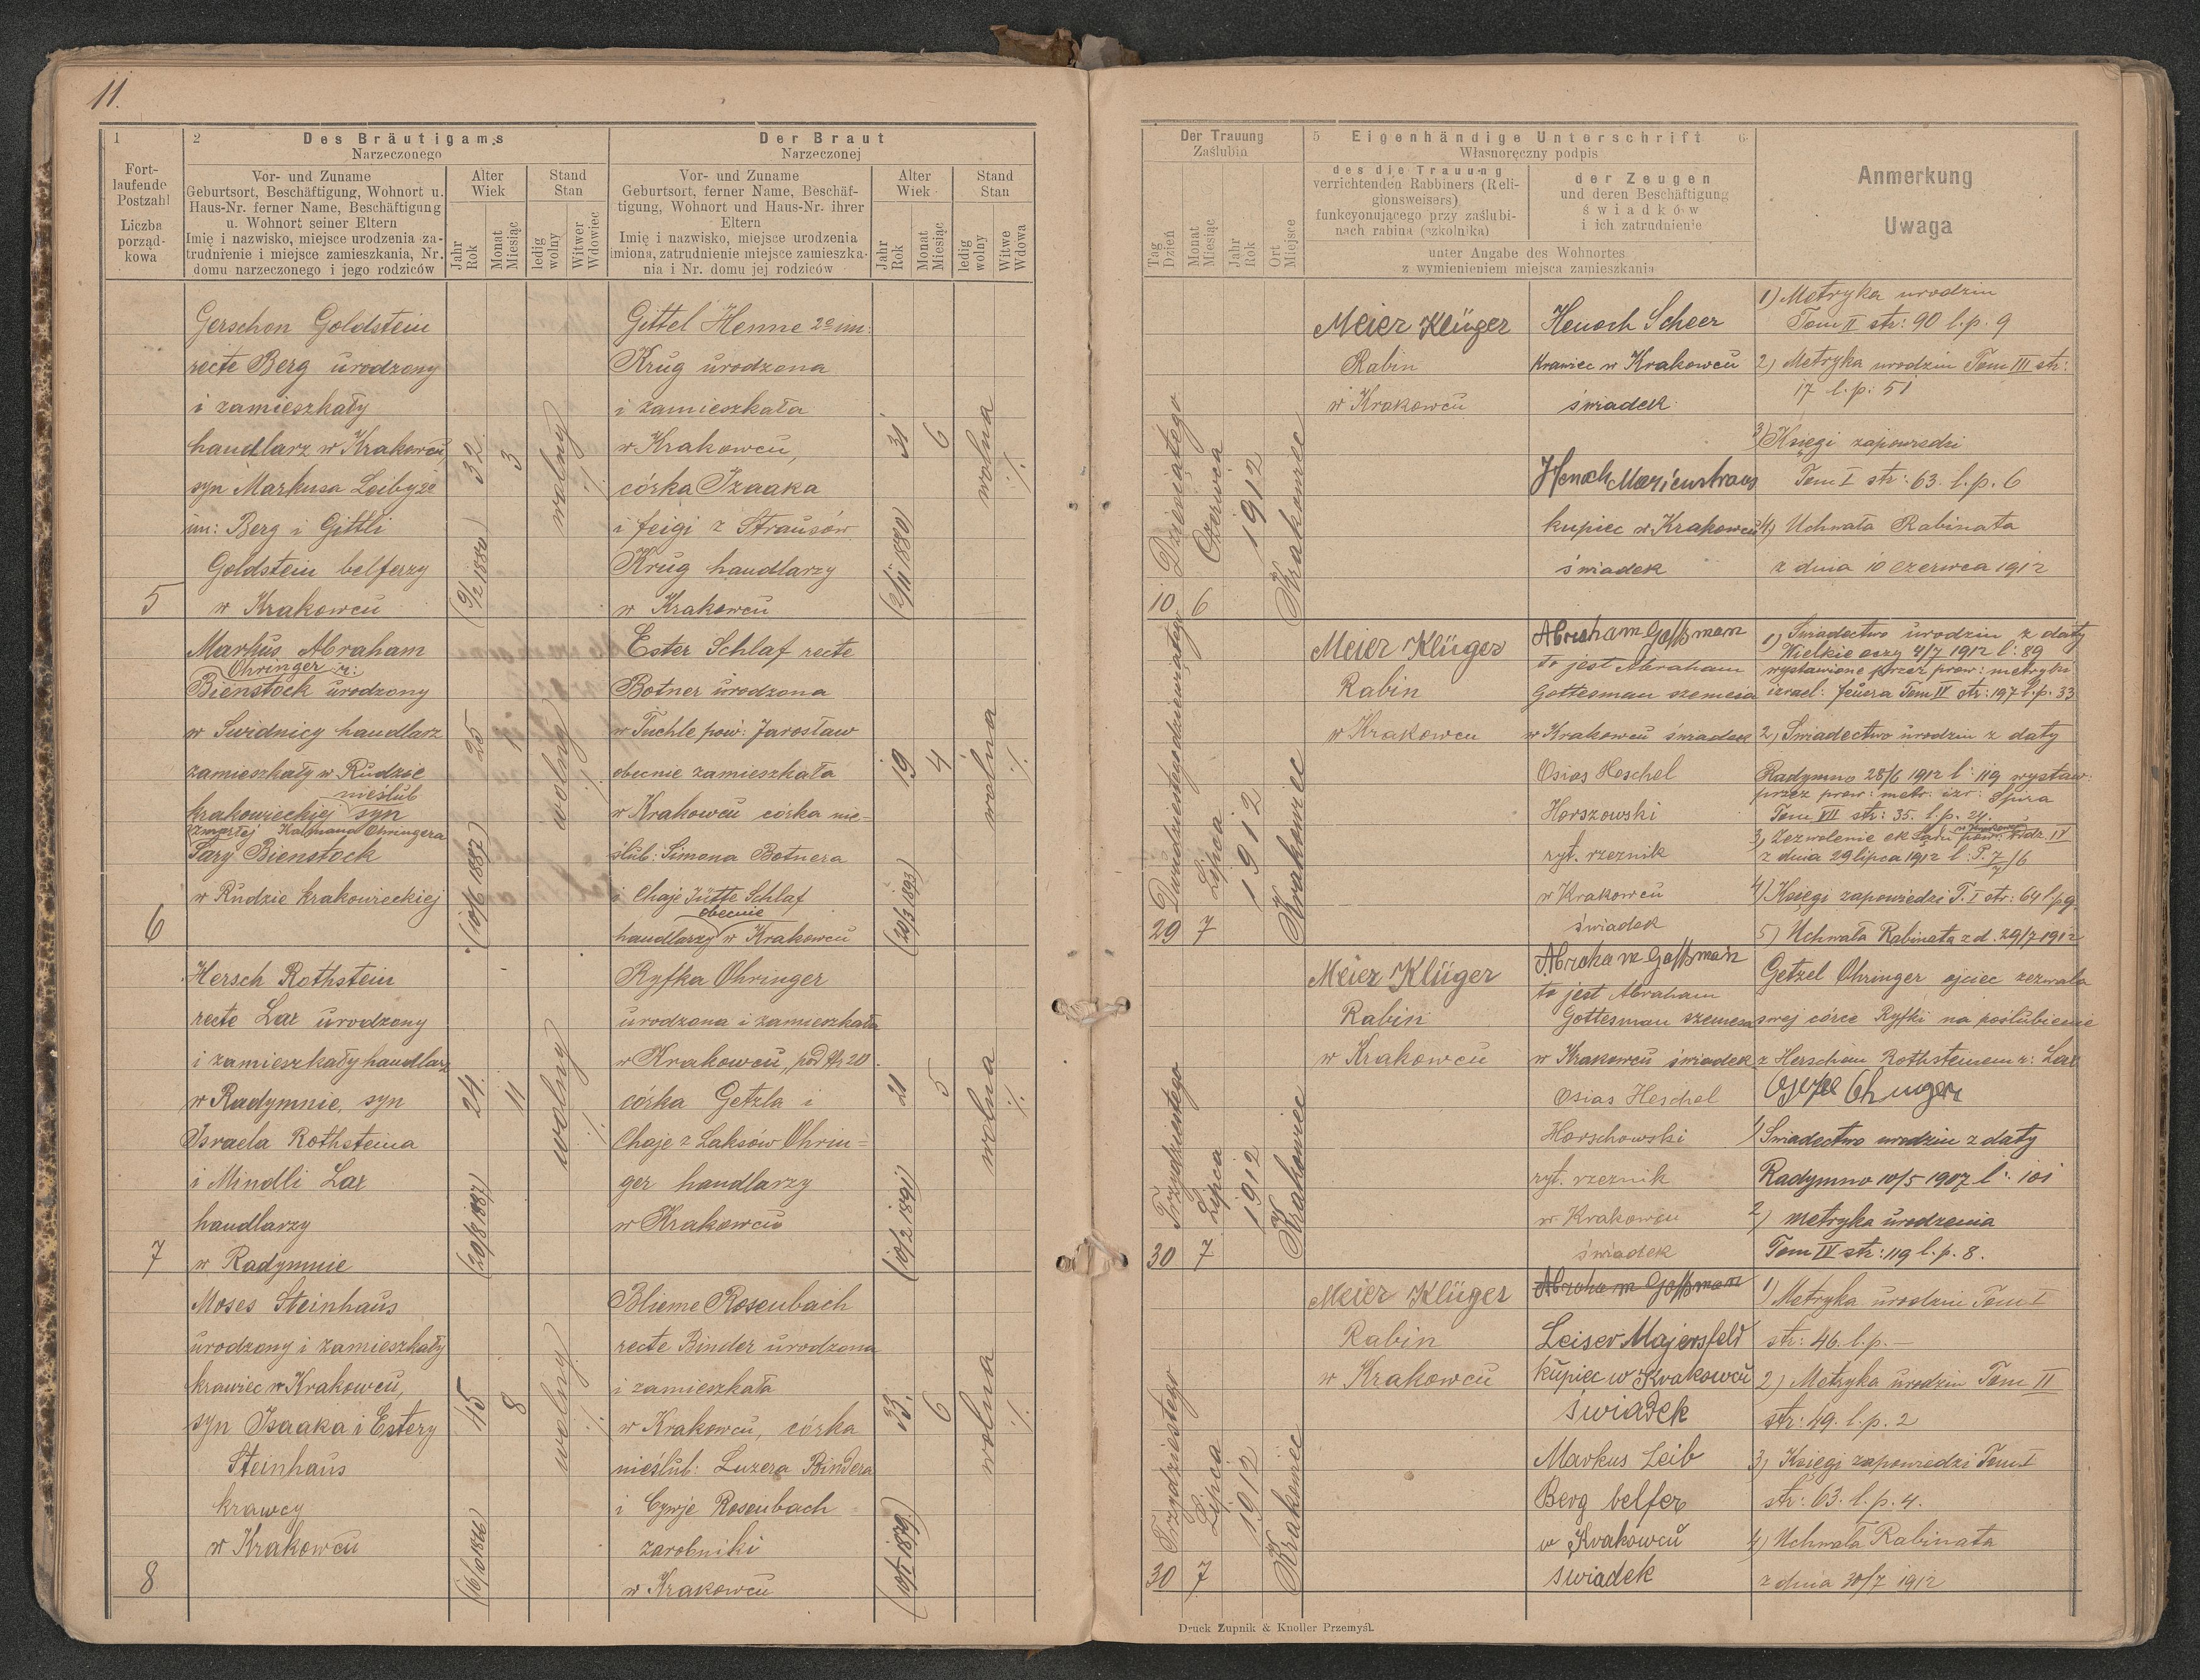 11.
1
2
Des Bräutigams
Narzeczonego
Der Braut
Narzeczonej
Fort-
laufende
Postzahl
Liczba
porząd-
kowa
Vor- und Zuname
Geburtsort, Beschäftigung, Wohnort u.
Haus-Nr. ferner Name, Beschäftigung
u. Wohnort seiner Eltern
Imię i nazwisko, miejsce urodzenia za-
trudnienie i miejsce zamieszkania, Nr.
domu narzeczonego i jego rodziców
Alter
Wiek
Jahr
Rok
Monat
Miesiąc
Stand
Stan
ledig
wolny
Witwer
Wdowiec
Vor- und Zuname
Geburtsort, ferner Name, Beschäf-
tigung, Wohnort und Haus-Nr. ihrer
Eltern
Imię i nazwisko, miejsce urodzenia
imiona, zatrudnienie miejsce zamieszka-
nia i Nr. domu jej rodziców
Alter
Wiek
Jahr
Rok
Monat
Miesiąc
Stand
Stan
ledig
wolny
Witwe
Wdowa
Gerschon Goldstein
recte Berg urodzony
i zamieszkały
handlarz w Krakowcu,
syn Markusa Leiby 2ga
im: Berg i Gittli
Goldstein belferzy
w Krakowcu
5
32
(9/2 1880)
3
wolny
Gittel Henne 2ga im:
Krug urodzona
i zamieszkała
w Krakowcu,
córka Izaaka
i feigi z Strausów
Krug handlarzy
w Krakowcu
31
(2/11 1880)
6
wolna
Markus Abraham
Ohringer r:
Bienstock urodzony
w Swidnicy handlarz
zamieszkały w Rudzie
nieślub
krakowieckiej syn
zmarłej Kalmana Ohringera
Sary Bienstock
w Rudzie krakowieckiej
6
25
(10/6 1887)
1
wolny
Ester Schlaf recte
Botner urodzona
w Tuchle pow: Jarosław
obecnie zamieszkała
w Krakowcu córka nie-
ślub: Simona Botnera
i Chaje Jütte Schlaf
obecnie
handlarzy w Krakowcu
19
(20/3 1893)
4
wolna
Hersch Rothstein
recte Lax urodzony
i zamieszkały handlarz
w Radymnie, syn
Israela Rothsteina
i Mindli Lax
handlarzy
w Radymnie
7
24
(20/8 1887)
11
wolny
Ryfka Ohringer
urodzona i zamieszkała
w Krakowcu, pod Nr 20
córka Getzla i
Chaje z Laksów Ohrin=
ger handlarzy
w Krakowcu
21
(10/2 1891)
5
wolna
Moses Steinhaus
urodzony i zamieszkały
krawiec w Krakowcu,
syn Isaaka i Estery
Steinhaus
krawcy
w Krakowcu
8
45
8
wolny
Blieme Rosenbach
recte Binder urodzona
i zamieszkała
w Krakowcu, córka
nieślub: Luzera Bindera
i Cywje Rosenbach
zarobniki
w Krakowcu
33
6
wolna
Der Trauung
Zaślubin
Tag
Dzień
Monat
Miesiąc
Jahr
Rok
Ort
Miejsce
5
Eigenhändige Unterschrift
6
Własnoręczny podpis
des die Trauung
verrichtenden Rabbiners (Reli-
gionsweisers)
funkcyonującego przy zaślubi-
nach rabina (szkolnika)
der Zeugen
und deren Beschäftigung
świadków
i ich zatrudnienie
unter Angabe des Wohnortes
z wymienieniem miejsca zamieszkania
Anmerkung
Uwaga
10
Dziesiątego
6
Czerwca
1912
Krakowiec
Meier Klüger
Rabin
w Krakowcu
Henoch Scheer
krawiec w Krakowcu
świadek
Henoch Marienstraus
kupiec w Krakowcu
świadek
1) Metryka urodzin
Tom II str: 90 l.p. 9
2) Metryka urodzin Tom III str:
17 l.p. 51
3) Księgi zapowiedzi
Tom I str: 63. l.p. 6
4) Uchwała Rabinata
z dnia 10 czerwca 1912
29
Dwudziestego dziewiątego
7
Lipca
1912
Krakowiec
Meier Klüger
Rabin
w Krakowcu
to jest Abraham
Gottesman szemesa
w Krakowcu świadek
Osias Heschel
Horszowski
ryt. rzeznik
w Krakowcu
świadek
1) Świadectwo urodzin z daty
Wielkie oczy 4/7 1912 l: 89
wystawione przez prow: metryki
izrael: feuera Tom IV str: 197 l.p. 33
2) Świadectwo urodzin z daty
Radymno 28/6 1912 l: 119 wystaw:
przez prow: metr: izr: Spira
Tom VII str: 35. l.p. 24.
z dnia 29 lipca 1912
4) Księgi zapowiedzi T. I str: 64 l p 9.
5) Uchwała Rabinata z d. 29/7 1912
30
Trzydziestego
7
Lipca
1912
Krakowiec
Meier Klüger
Rabin
w Krakowcu
to jest Abraham
Gottesman szemesa
w Krakowcu świadek
Osias Heschel
Horschowski
ryt. rzeznik
w Krakowcu
świadek
Getzel Ohringer ojciec zezwala
swej córce Ryfki na poślubienie
z Herschem Rothsteinem r: Lax
1) Świadectwo urodzin z daty
Radymno 10/5 1907 l: 101
2) metryka urodzenia
Tom IV str: 119 l.p. 8.
30
Trzydziestego
7
Lipca
1912
Krakowiec
Meier Klüger
Rabin
w Krakowcu
Leiser Majersfeld
kupiec w Krakowcu
świadek
Markus Leib
Berg belfer
w Krakowcu
świadek
1) Metryka urodzin Tom I
str: 46. l.p. —
2) Metryka urodzin Tom II
str: 49. l.p. 2
3) Księgi zapowiedzi Tom I
str: 63. l.p. 4.
4) Uchwała Rabinata
z dnia 30/7 1912
Druck Zupnik & Knoller Przemyśl.